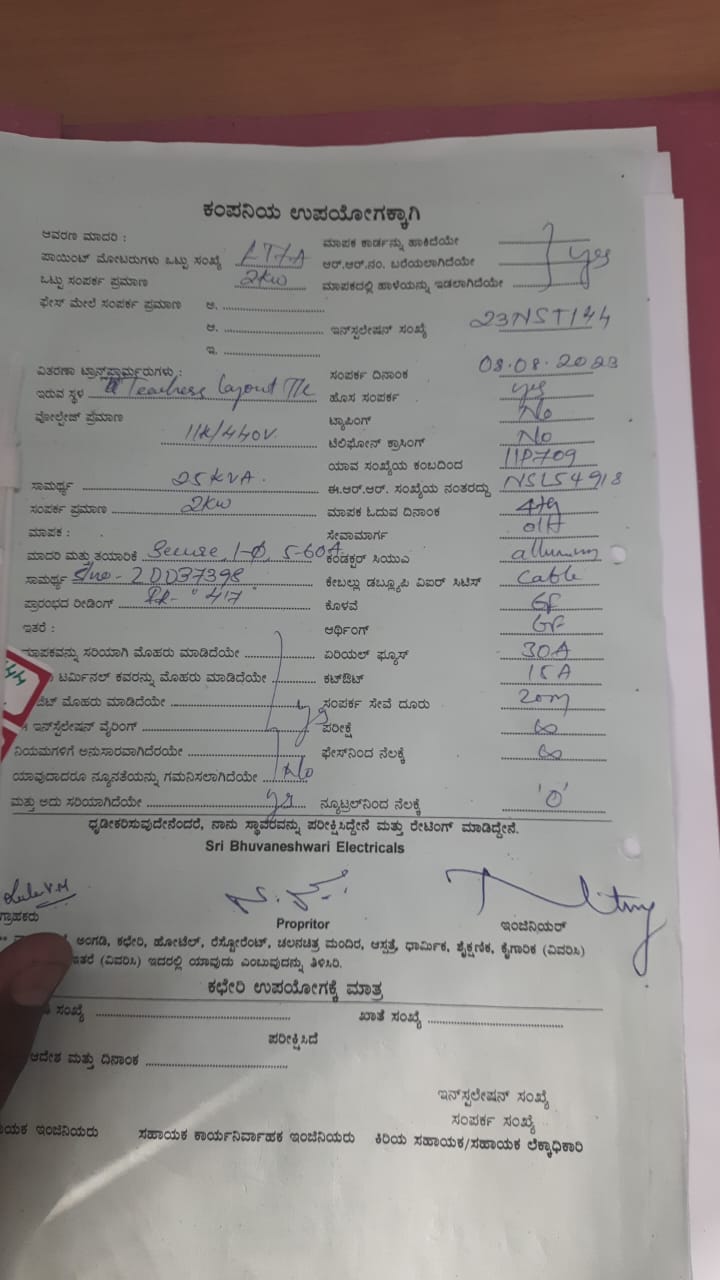 ಕಂಪನಿಯ ಉಪಯೋಗಕ್ಕಾಗಿ
ಆವರಣ ಮಾದರಿ : ಮಾಪಕ ಕಾರ್ಡನ್ನು ಹಾಕಿದೆಯೇ
ಪಾಯಿಂಟ್ ಮೋಟರುಗಳು ಒಟ್ಟು ಸಂಖ್ಯೆ LT7-A ಆರ್.ಆರ್.ನಂ. ಬರೆಯಲಾಗಿದೆಯೇ yes
ಒಟ್ಟು ಸಂಪರ್ಕ ಪ್ರಮಾಣ 2KW ಮಾಪಕದಲ್ಲಿ ಹಾಳೆಯನ್ನು ಇಡಲಾಗಿದೆಯೇ
ಫೇಸ್ ಮೇಲೆ ಸಂಪರ್ಕ ಪ್ರಮಾಣ ಅ.
ಆ. ಇನ್‌ಸ್ಪಲೇಷನ್ ಸಂಖ್ಯೆ 23NST144
ಇ.
ವಿತರಣಾ ಟ್ರಾನ್ಸ್‌ಫಾರ್ಮರುಗಳು : ಸಂಪರ್ಕ ದಿನಾಂಕ 08.08.2023
ಇರುವ ಸ್ಥಳ Teachers layout T/C ಹೊಸ ಸಂಪರ್ಕ yes
ವೋಲ್ಟೇಜ್ ಪ್ರಮಾಣ ಟ್ಯಾಪಿಂಗ್ No
11K/440V. ಟೆಲಿಫೋನ್ ಕ್ರಾಸಿಂಗ್ No
ಯಾವ ಸಂಖ್ಯೆಯ ಕಂಬದಿಂದ 11P709
ಸಾಮರ್ಥ್ಯ 25KVA. ಈ.ಆರ್.ಆರ್. ಸಂಖ್ಯೆಯ ನಂತರದ್ದು NSL54918
ಸಂಪರ್ಕ ಪ್ರಮಾಣ 2KW ಮಾಪಕ ಓದುವ ದಿನಾಂಕ 4th
ಮಾಪಕ : ಸೇವಾಮಾರ್ಗ O/H
ಮಾದರಿ ಮತ್ತು ತಯಾರಿಕೆ Secure, 1-Φ, 5-60A ಕಂಡಕ್ಟರ್ ಸಿಯುಎ
ಸಾಮರ್ಥ್ಯ S/no - 2DD37398 ಕೇಬಲ್ಲು ಡಬ್ಲ್ಯೂಪಿ ವಿಐರ್ ಸಿಟಿಸ್ Cable
ಪ್ರಾರಂಭದ ರೀಡಿಂಗ್ IR- "417" ಕೊಳವೆ GF
ಇತರೆ : ಆರ್ಥಿಂಗ್ GF
ಮಾಪಕವನ್ನು ಸರಿಯಾಗಿ ಮೊಹರು ಮಾಡಿದೆಯೇ ಏರಿಯಲ್ ಫ್ಯೂಸ್ 30A
ಟರ್ಮಿನಲ್ ಕವರನ್ನು ಮೊಹರು ಮಾಡಿದೆಯೇ ಕಟ್‌ಔಟ್ 15A
ಮೊಹರು ಮಾಡಿದೆಯೇ yes ಸಂಪರ್ಕ ಸೇವೆ ದೂರು 20m
ಇನ್‌ಸ್ಪೆಲೇಷನ್ ವೈರಿಂಗ್ ಪರೀಕ್ಷೆ ∞
ನಿಯಮಗಳಿಗೆ ಅನುಸಾರವಾಗಿದೆರಯೇ ಫೇಸ್‌ನಿಂದ ನೆಲಕ್ಕೆ ∞
ಯಾವುದಾದರೂ ನ್ಯೂನತೆಯನ್ನು ಗಮನಿಸಲಾಗಿದೆಯೇ No
ಮತ್ತು ಅದು ಸರಿಯಾಗಿದೆಯೇ yes ನ್ಯೂಟ್ರಲ್‌ನಿಂದ ನೆಲಕ್ಕೆ '0'
ಧೃಡೀಕರಿಸುವುದೇನೆಂದರೆ, ನಾನು ಸ್ಥಾವರವನ್ನು ಪರೀಕ್ಷಿಸಿದ್ದೇನೆ ಮತ್ತು ರೇಟಿಂಗ್ ಮಾಡಿದ್ದೇನೆ.
Sri Bhuvaneshwari Electricals
ಗ್ರಾಹಕರು Propritor ಇಂಜಿನಿಯರ್
ಅಂಗಡಿ, ಕಛೇರಿ, ಹೋಟೆಲ್, ರೆಸ್ಟೋರೆಂಟ್, ಚಲನಚಿತ್ರ ಮಂದಿರ, ಆಸ್ಪತ್ರೆ, ಧಾರ್ಮಿಕ, ಶೈಕ್ಷಣಿಕ, ಕೈಗಾರಿಕ (ವಿವರಿಸಿ)
ಇತರೆ (ವಿವರಿಸಿ) ಇದರಲ್ಲಿ ಯಾವುದು ಎಂಬುವುದನ್ನು ತಿಳಿಸಿರಿ.
ಕಛೇರಿ ಉಪಯೋಗಕ್ಕೆ ಮಾತ್ರ
ಸಂಖ್ಯೆ ಖಾತೆ ಸಂಖ್ಯೆ
ಪರೀಕ್ಷಿಸಿದೆ
ಆದೇಶ ಮತ್ತು ದಿನಾಂಕ
ಇನ್‌ಸ್ಪಲೇಷನ್ ಸಂಖ್ಯೆ
ಸಂಪರ್ಕ ಸಂಖ್ಯೆ
ಇಂಜಿನಿಯರು ಸಹಾಯಕ ಕಾರ್ಯನಿರ್ವಾಹಕ ಇಂಜಿನಿಯರು ಕಿರಿಯ ಸಹಾಯಕ/ಸಹಾಯಕ ಲೆಕ್ಕಾಧಿಕಾರಿ